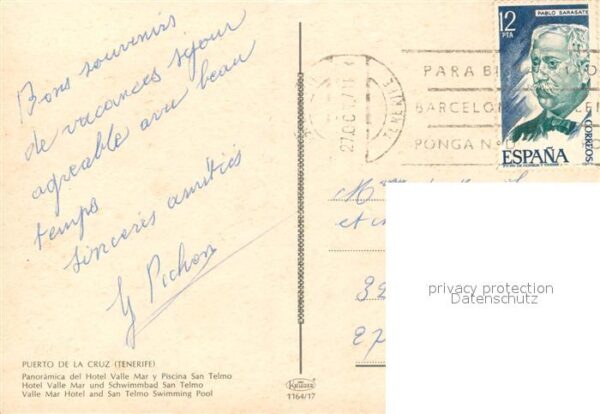 Bons souvenirs
de vacances séjour
agréable avu beau
temps
sincères amitiés
y Pichon
PUERTO DE LA CRUZ (TENERIFE)
Panorámica del Hotel Valle Mar y Piscina San Telmo
Hotel Valle Mar und Schwimmbad San Telmo
Valle Mar Hotel and San Telmo Swimming Pool
Krüger
1164/17
12
PTA
PABLO SARASATE
CORREOS
ESPAÑA
27.OC
TENERIFE
PARA
BARCELON
PONGA
et
privacy protection
Datenschutz